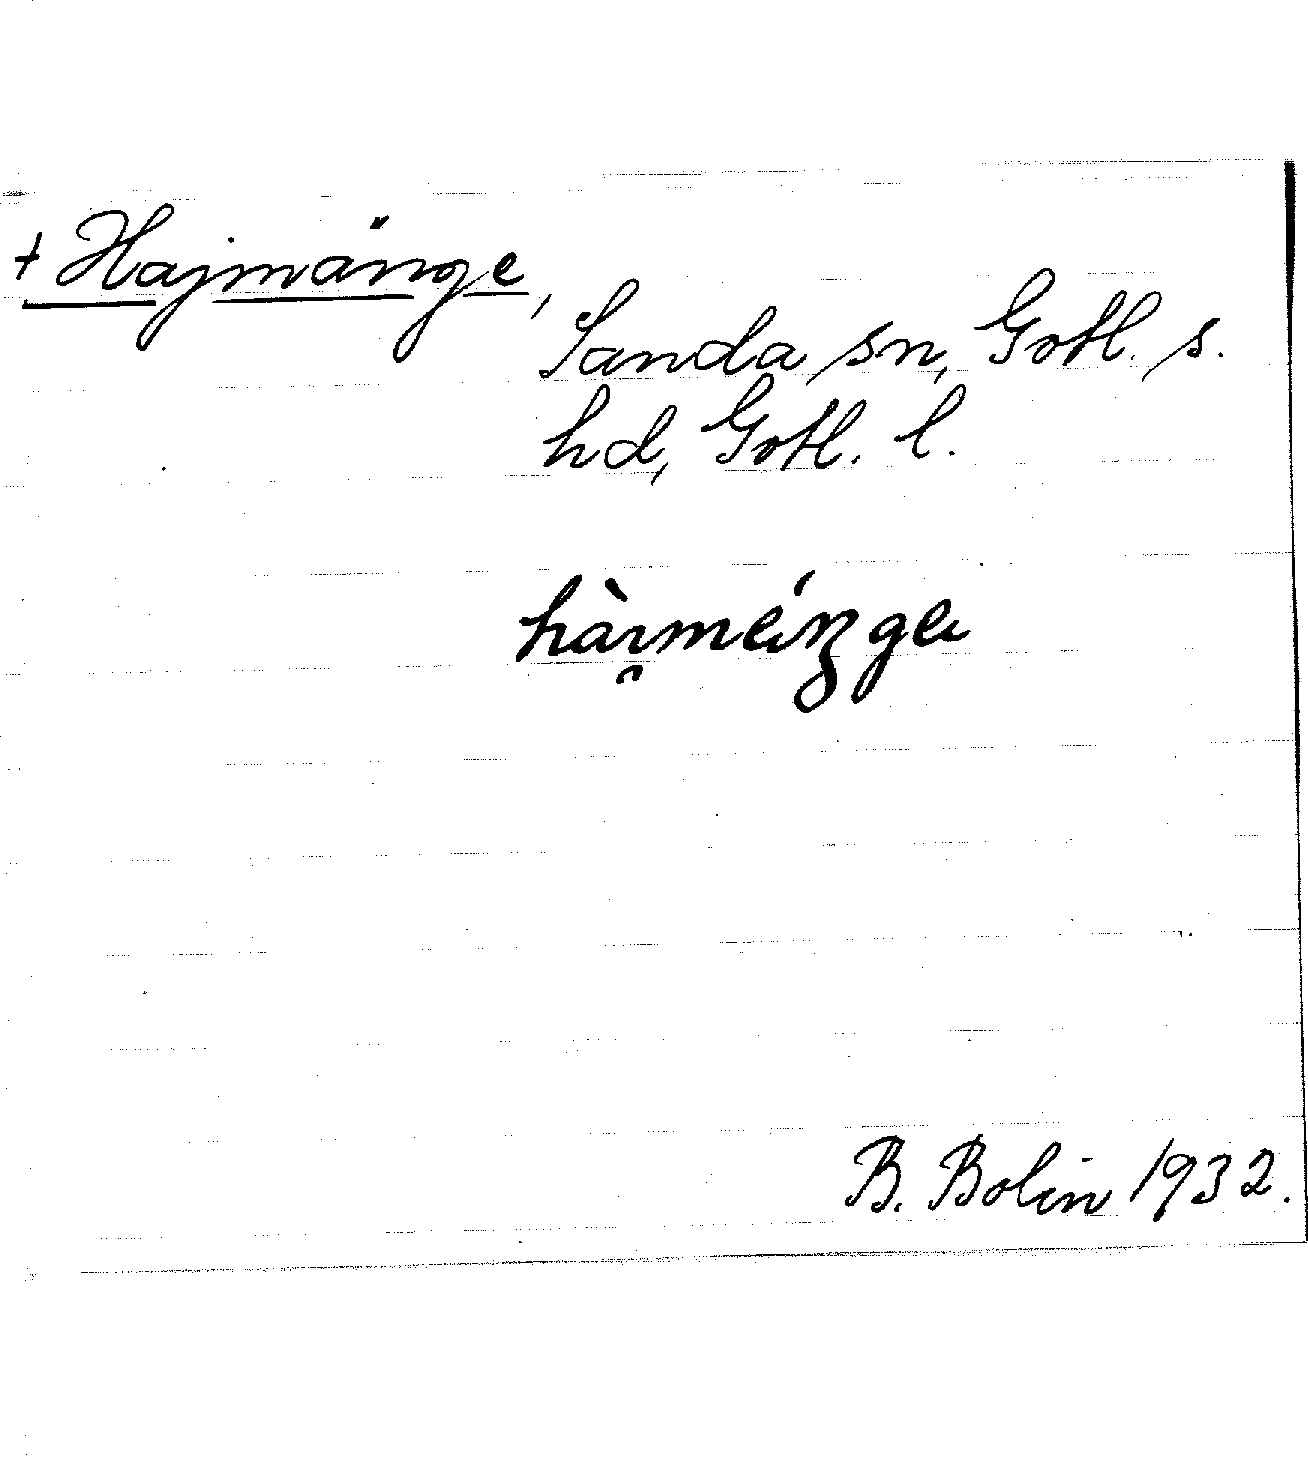 + Hajmänge,
Sanda sn, Gotl. s.
hd, Gotl. l.
B. Bolin 1932.